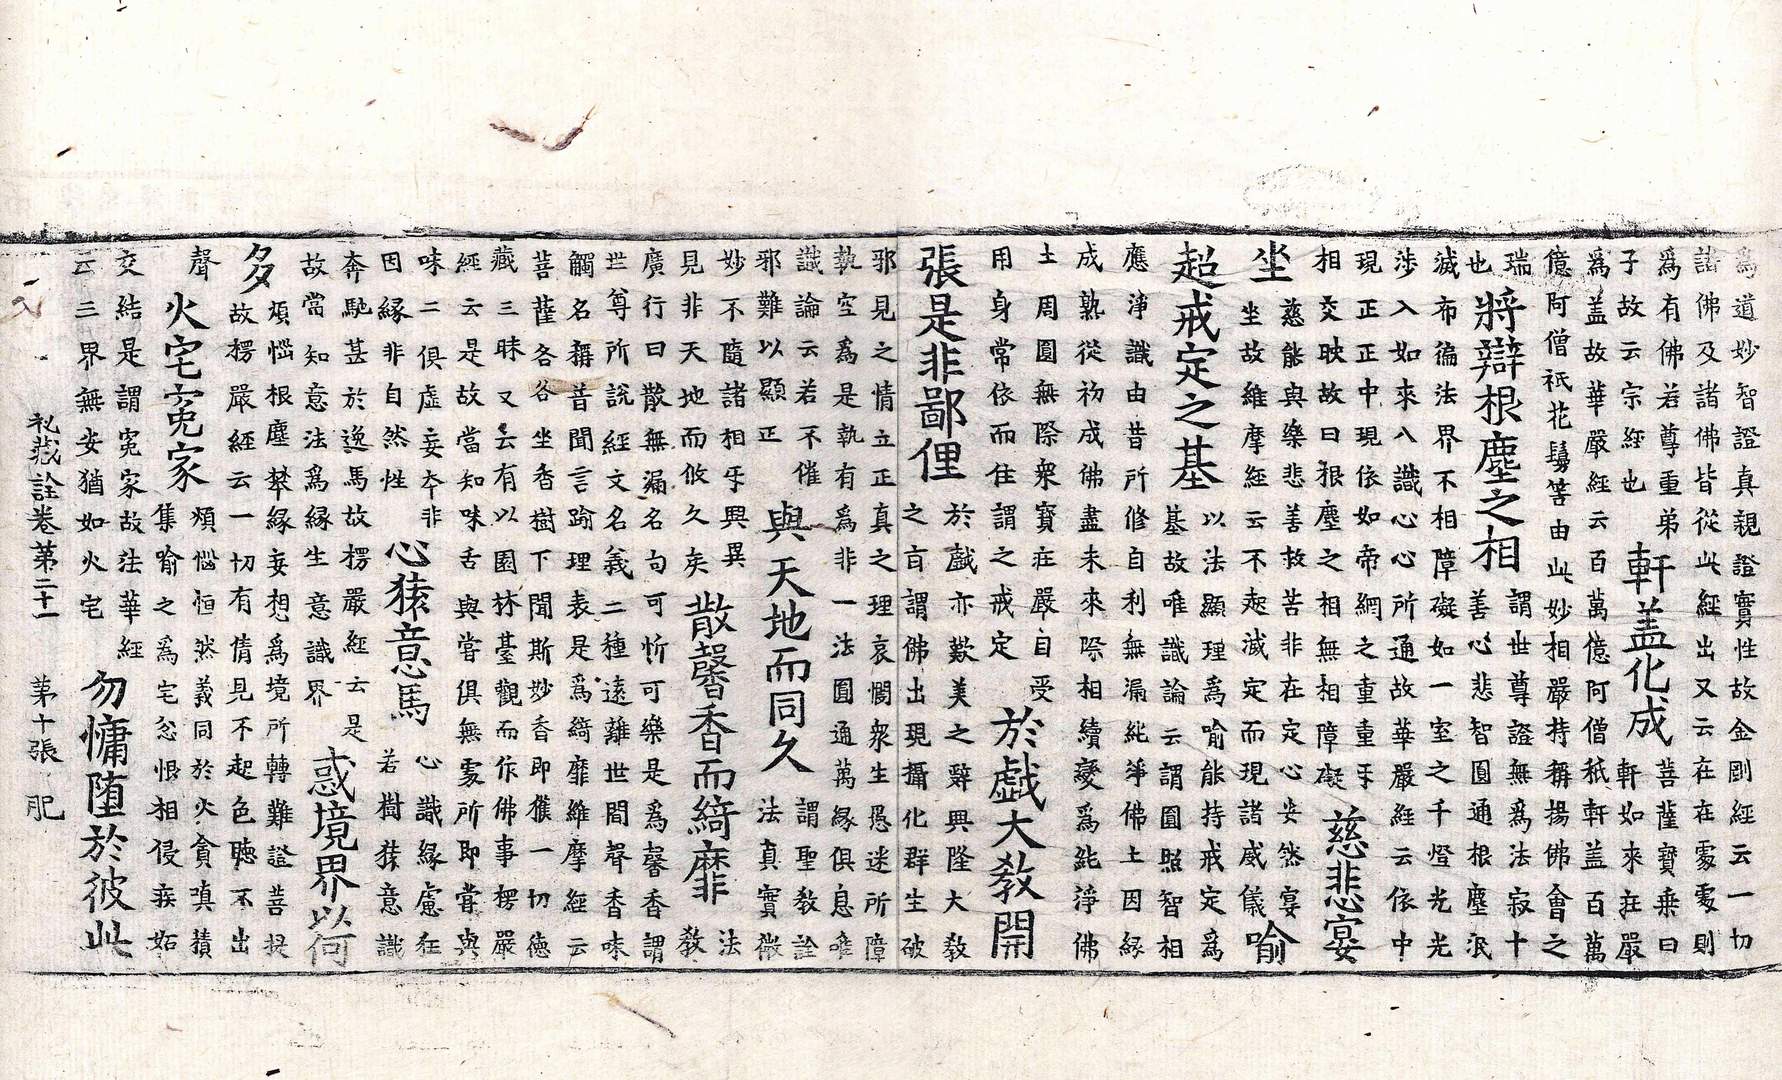 為道妙智證真親證實性故金剛經云一切
諸佛及諸佛皆從此經出又云在在處處則
為有佛若尊重弟
子故云宗經也
軒盖化成
菩薩寶乘曰
軒如來在嚴
為盖故華嚴經云百萬億阿僧秖軒盖百萬
億阿僧祇花鬘等由此妙相嚴持稱揚佛會之
瑞
也
將辯根塵之相
謂世尊證無為法寂十
善心悲智圓通根塵泯
滅布徧法界不相障礙如一室之千燈光光
涉入如來八識心心所通故華嚴經云依中
現正正中現依如帝網之重重㸦
相交映故曰根塵之相無相障礙
慈悲宴
坐
慈能與樂悲善救苦非在定心安然宴
坐故維摩經云不起滅定而現諸威儀
喻
超戒定之基
以法顯理為喻能持戒定為
基故唯識論云謂圓照智相
應淨識由昔所修自利無漏純淨佛土因緣
成熟從初成佛盡未來際相續變為純淨佛
土周圓無際衆寶莊嚴自受
用身常依而住謂之戒定
於戲大教開
張是非鄙俚
於戲亦歎美之辭興隆大教
之盲謂佛出現攝化群生破
邪見之情立正真之理哀憫衆生愚迷所障
執空為是執有為非一法圓通萬緣俱息唯
識論云若不催
邪難以顯正
與天地而同久
謂聖教詮
法真實微
妙不隨諸相㸦興異
見非天地而攸久矣
散馨香而綺靡
法
教
廣行曰散無漏名句可忻可樂是為馨香謂
世尊所説經文名義二種遠離世間聲香味
觸名稱昔聞言踰理表是為綺靡維摩經云
菩薩各各坐香樹下聞斯妙香即獲一切德
藏三昧又云有以園林臺觀而作佛事楞嚴
經云是故當知味舌與嘗俱無處所即甞與
味二俱虛妄本非
因緣非自然性
心猿意馬
心識緣慮狂
若樹猿意識
奔馳甚於逸馬故楞嚴經云是
故當知意法為緣生意識界
惑境界以何
多
煩惱根塵攀緣妄想為境所轉難證菩提
故楞嚴經云一切有情見不起色聽不出
聲
火宅寃家
煩惱恒然義同於火貪嗔積
集喻之為宅忿恨相侵疾妬
交結是謂寃家故法華經
云三界無安猶如火宅
勿慵墮於彼此
秘藏詮卷第二十一 第十張 肥